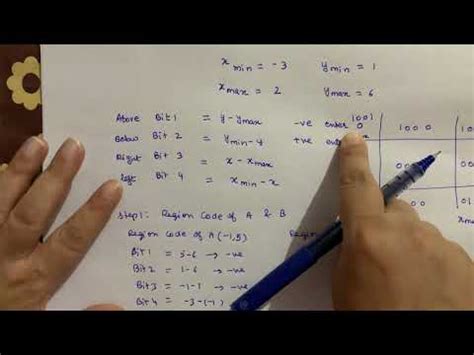 x min = -3 y min = 1
x max = 2 y max = 6
Above Bit 1 = y - ymax -ve enter 0
Below Bit 2 = ymin - y +ve
Right Bit 3 = x - xmax
left Bit 4 = xmin - x
1001 1000
Step1: Region Code of A & B
Region Code of A (-1,5)
Bit 1 = 5-6 → -ve
Bit 2 = 1-6 → -ve
Bit 3 = -1-2 → -ve
Bit 4 = -3-(-1)